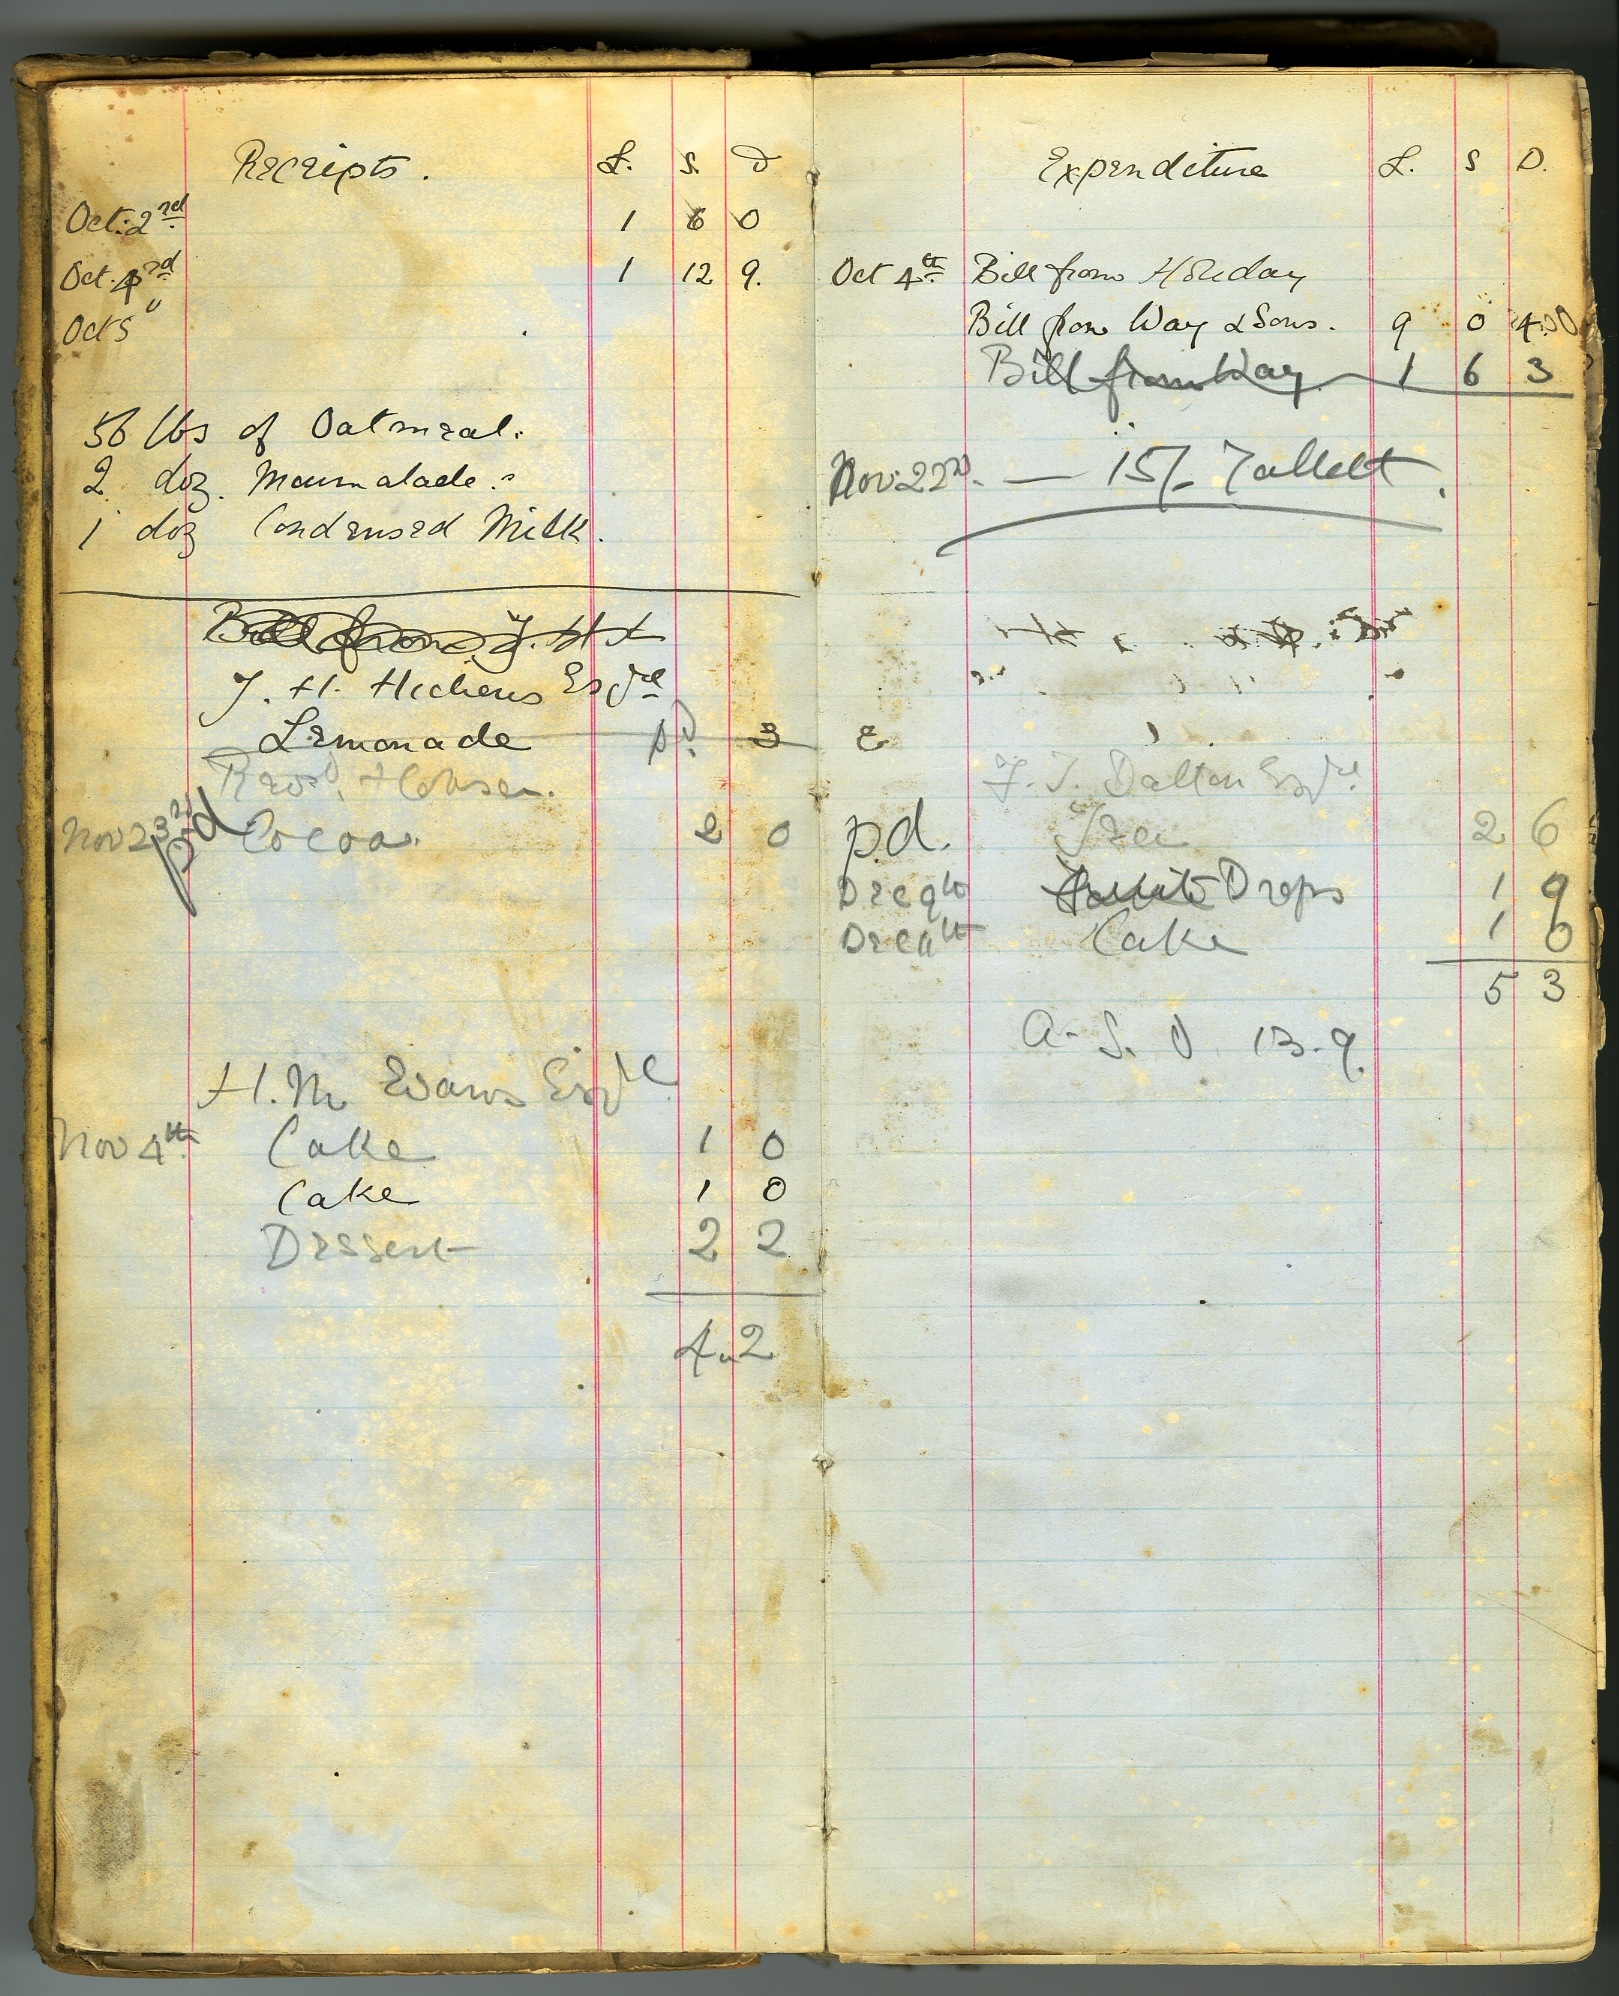 Receipts. £. S. D
Oct. 2nd 1 6 0
Oct. 4rd 1 12 9.
Oct 5"
56 lbs of Oatmeal.
2 doz. Marmalade.
1 doz Condensed Milk.
Bill from J. H
J. H. Hichens Esqre
Lemonade pd. 3
Revd.
Nov 23rd pd Cocoa. 2 0
H. M Evans Esqre
Nov 4th Cake 1 0
Cake 1 0
Dessert 2 2
4.2
Expenditure £. S D.
Oct 4th Bill from Holiday
Bill from Way & Sons. 9 0 4
Bill from Way 1 6 3
Nov. 22nd. — 15/- Tallett.
F. T. Dalton Esqre
pd. Tea 2 6
Dec 9th Drops 1 9
Dec 11th Cake 1 0
5 3
A. S. D 13.9.